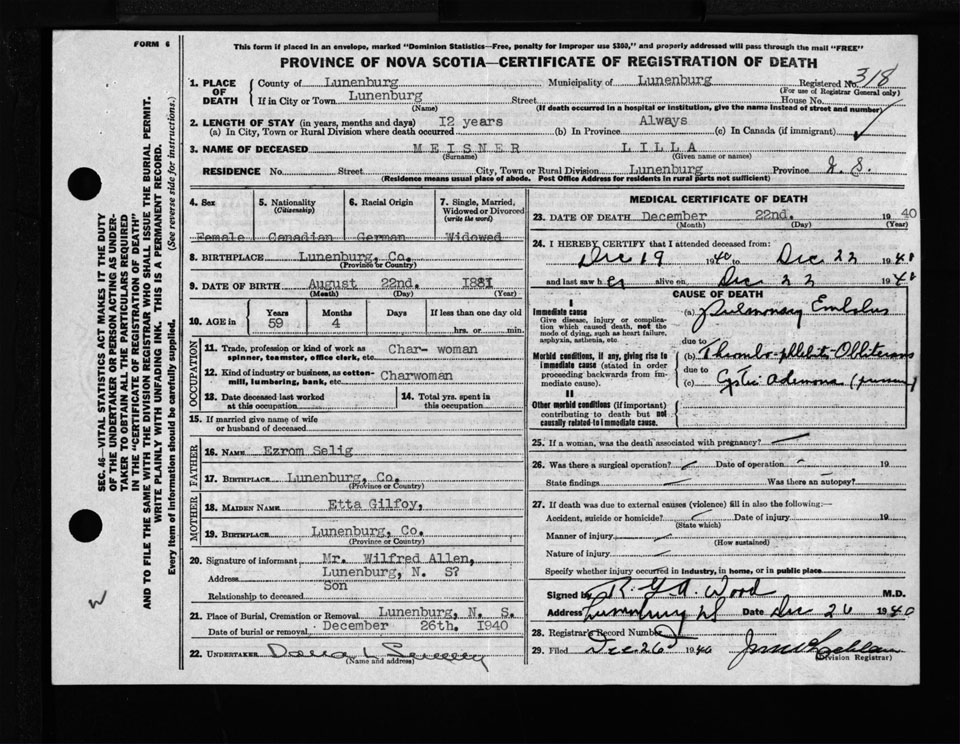 FORM 6
This form if placed in an envelope, marked "Dominion Statistics—Free, penalty for improper use $300," and properly addressed will pass through the mail "FREE"
PROVINCE OF NOVA SCOTIA—CERTIFICATE OF REGISTRATION OF DEATH
1. PLACE OF DEATH
County of Lunenburg Municipality of Lunenburg Registered No. 318
(For use of Registrar General only)
If in City or Town Lunenburg Street House No.
(Name) (If death occurred in a hospital or institution, give the name instead of street and number)
2. LENGTH OF STAY (in years, months and days)
(a) In City, Town or Rural Division where death occurred 12 years (b) In Province Always (c) In Canada (if immigrant)
3. NAME OF DECEASED MEISNER LILLA
(Surname) (Given name or names)
RESIDENCE No. Street City, Town or Rural Division Lunenburg Province N. S.
(Residence means usual place of abode. Post Office Address for residents in rural parts not sufficient)
4. Sex Female
5. Nationality (Citizenship) Canadian
6. Racial Origin German
7. Single, Married, Widowed or Divorced (write the word) Widowed
8. BIRTHPLACE Lunenburg, Co.
(Province or Country)
9. DATE OF BIRTH August 22nd. 1881
(Month) (Day) (Year)
10. AGE in Years 59 Months 4 Days If less than one day old hrs. or min.
OCCUPATION
11. Trade, profession or kind of work as spinner, teamster, office clerk, etc. Char- woman
12. Kind of industry or business, as cotton-mill, lumbering, bank, etc. Charwoman
13. Date deceased last worked at this occupation
14. Total yrs. spent in this occupation
15. If married give name of wife or husband of deceased
FATHER
16. NAME Ezrom Selig
17. BIRTHPLACE Lunenburg Co.
(Province or Country)
MOTHER
18. MAIDEN NAME Etta Gilfoy,
19. BIRTHPLACE Lunenburg, Co.
(Province or Country)
20. Signature of informant Mr. Wilfred Allen,
Address Lunenburg, N. S?
Relationship to deceased Son
21. Place of Burial, Cremation or Removal Lunenburg, N. S.
Date of burial or removal December 26th. 1940
22. UNDERTAKER
(Name and address)
MEDICAL CERTIFICATE OF DEATH
23. DATE OF DEATH December 22nd. 1940
(Month) (Day) (Year)
24. I HEREBY CERTIFY that I attended deceased from:
Dec 19 1940 to Dec 22 1940
and last saw her alive on Dec 22 1940
CAUSE OF DEATH
I
Immediate cause
Give disease, injury or complication which caused death, not the mode of dying, such as heart failure, asphyxia, asthenia, etc.
(a) Pulmonary Embolus
due to
Morbid conditions, if any, giving rise to immediate cause (stated in order proceeding backwards from immediate cause).
(b) Thrombo-phlebitis Obliterans
due to
(c) Cystic Adenoma
II
Other morbid conditions (if important) contributing to death but not causally related to immediate cause.
25. If a woman, was the death associated with pregnancy?
26. Was there a surgical operation? Date of operation 19
State findings Was there an autopsy?
27. If death was due to external causes (violence) fill in also the following:—
Accident, suicide or homicide? Date of injury 19
(State which)
Manner of injury
(How sustained)
Nature of injury
Specify whether injury occurred in industry, in home, or in public place
Signed by R. G. A. Wood M.D.
Address Lunenburg NS Date Dec 26 1940
28. Registrar's Record Number
29. Filed Dec 26 1940
(Division Registrar)
SEC. 46—VITAL STATISTICS ACT MAKES IT THE DUTY
OF THE UNDERTAKER OR PERSON ACTING AS UNDER-
TAKER TO OBTAIN ALL THE PARTICULARS REQUIRED
IN THE "CERTIFICATE OF REGISTRATION OF DEATH"
AND TO FILE THE SAME WITH THE DIVISION REGISTRAR WHO SHALL ISSUE THE BURIAL PERMIT.
WRITE PLAINLY WITH UNFADING INK. THIS IS A PERMANENT RECORD.
Every item of information should be carefully supplied. (See reverse side for instructions.)